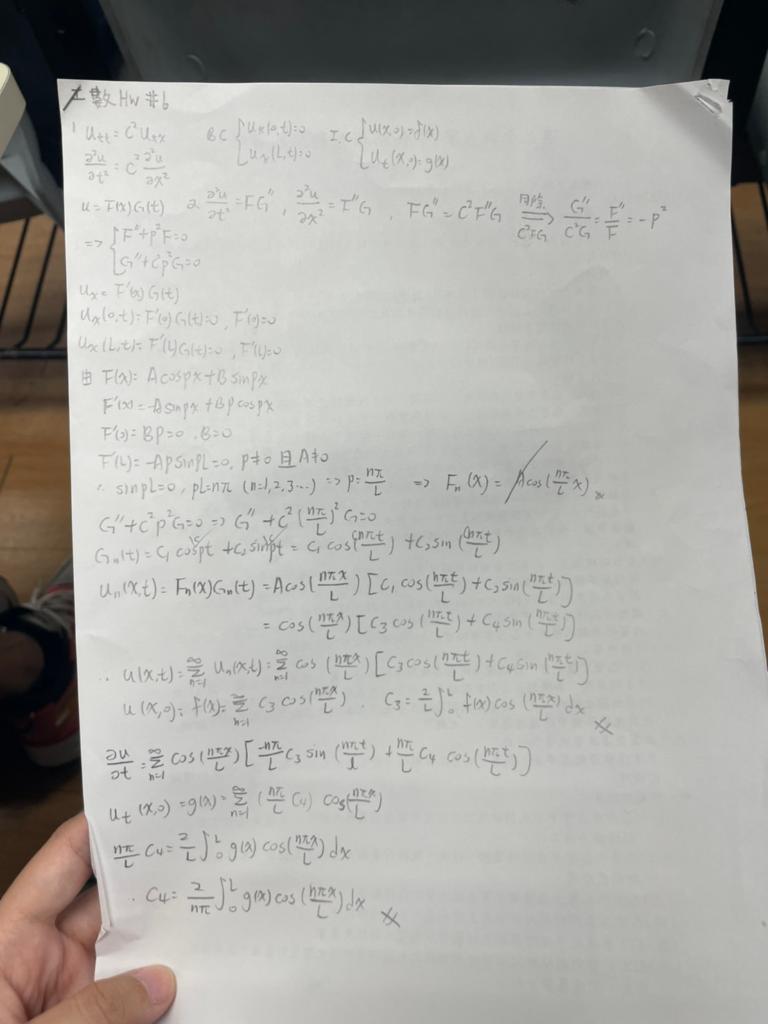 工數 HW #6
1 Utt = C²Uxx BC { Ux(0,t)=0 I.C { U(x,0)=f(x)
∂²u/∂t² = C² ∂²u/∂x² Ux(L,t)=0 Ut(x,0)=g(x)
u = F(x)G(t) ∂²u/∂t² = FG'', ∂²u/∂x² = F''G, FG'' = C²F''G 同除 C²FG ⟹ G''/C²G = F''/F = -p²
=> { F''+p²F=0
G''+C²p²G=0
Ux = F'(x)G(t)
Ux(0,t)=F'(0)G(t)=0, F'(0)=0
Ux(L,t)=F'(L)G(t)=0, F'(L)=0
由 F(x)= Acospx+Bsinpx
F'(x)=-Asinpx+BPcospx
F'(0)=BP=0, B=0
F'(L)=-APsinpL=0, P≠0 且 A≠0
∴ sinpL=0, pL=nπ (n=1,2,3...) => p=nπ/L => Fn(x) = Acos(nπ/L x)
G''+c²p²G=0 => G''+C²(nπ/L)²G=0
Gn(t)= C1 cospt + C2 sinpt = C1 cos(nπt/L) + C2 sin(nπt/L)
Un(x,t)= Fn(x)Gn(t) = Acos(nπx/L)[C1 cos(nπt/L)+C2 sin(nπt/L)]
= cos(nπx/L)[C3 cos(nπt/L) + C4 sin(nπt/L)]
∴ U(x,t)=∑n=1^∞ Un(x,t)=∑n=1^∞ cos(nπx/L)[C3cos(nπt/L)+C4sin(nπt/L)]
U(x,0)= f(x)=∑n=1^∞ C3 cos(nπx/L). C3=2/L ∫0^L f(x)cos(nπx/L)dx
∂u/∂t=∑n=1^∞ cos(nπx/L)[-nπ/L C3 sin(nπt/L)+nπ/L C4 cos(nπt/L)]
Ut(x,0)=g(x)=∑n=1^∞ (nπ/L C4) cos(nπx/L)
nπ/L C4=2/L ∫0^L g(x)cos(nπx/L)dx
∴ C4= 2/nπ ∫0^L g(x)cos(nπx/L)dx